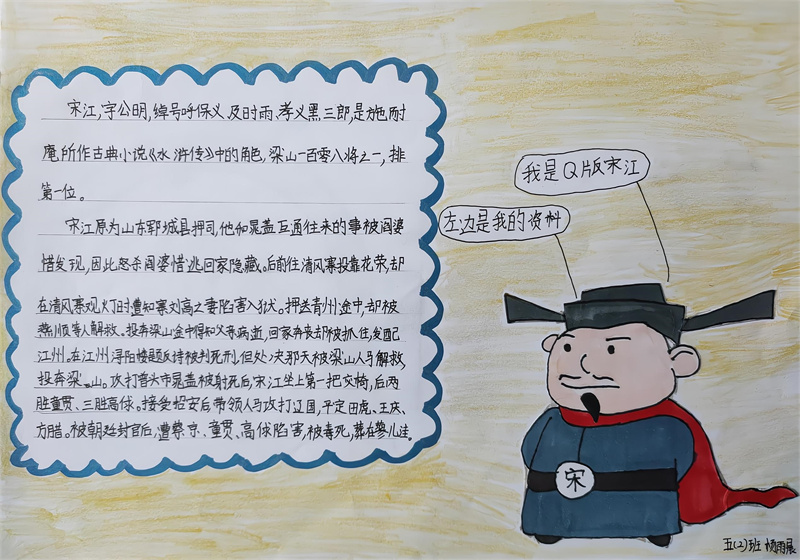 宋江,字公明,绰号呼保义、及时雨、孝义黑三郎,是施耐
庵所作古典小说《水浒传》中的角色,梁山一百零八将之一,排
第一位。
宋江原为山东郓城县押司,他和晁盖互通往来的事被阎婆
惜发现,因此怒杀阎婆惜,逃回家隐藏。后前往清风寨投靠花荣,却
在清风寨观灯时遭知寨刘高之妻陷害入狱。押送青州途中,却被
燕顺等人解救。投奔梁山途中得知父亲病逝,回家奔丧却被抓住,发配
江州。在江州浔阳楼题反诗被判死刑,但处决那天被梁山人马解救,
投奔梁山。攻打曾头市晁盖被射死后,宋江坐上第一把交椅,后两
胜童贯、三胜高俅。接受招安后,带领人马攻打辽国,平定田虎、王庆、
方腊。被朝廷封官后,遭蔡京、童贯、高俅陷害,被毒死,葬在蓼儿洼。
我是Q版宋江
左边是我的资料
宋
五(2)班 雨展